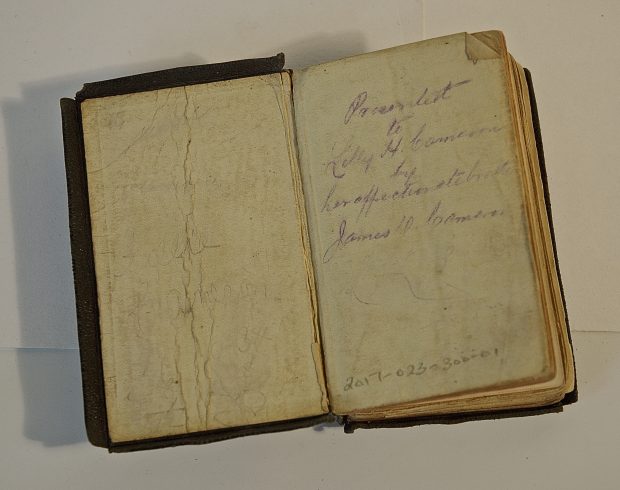 Presented
to
Lilly H. Cameron
by
her affectionate
James D. Cameron
2017-023-300-01